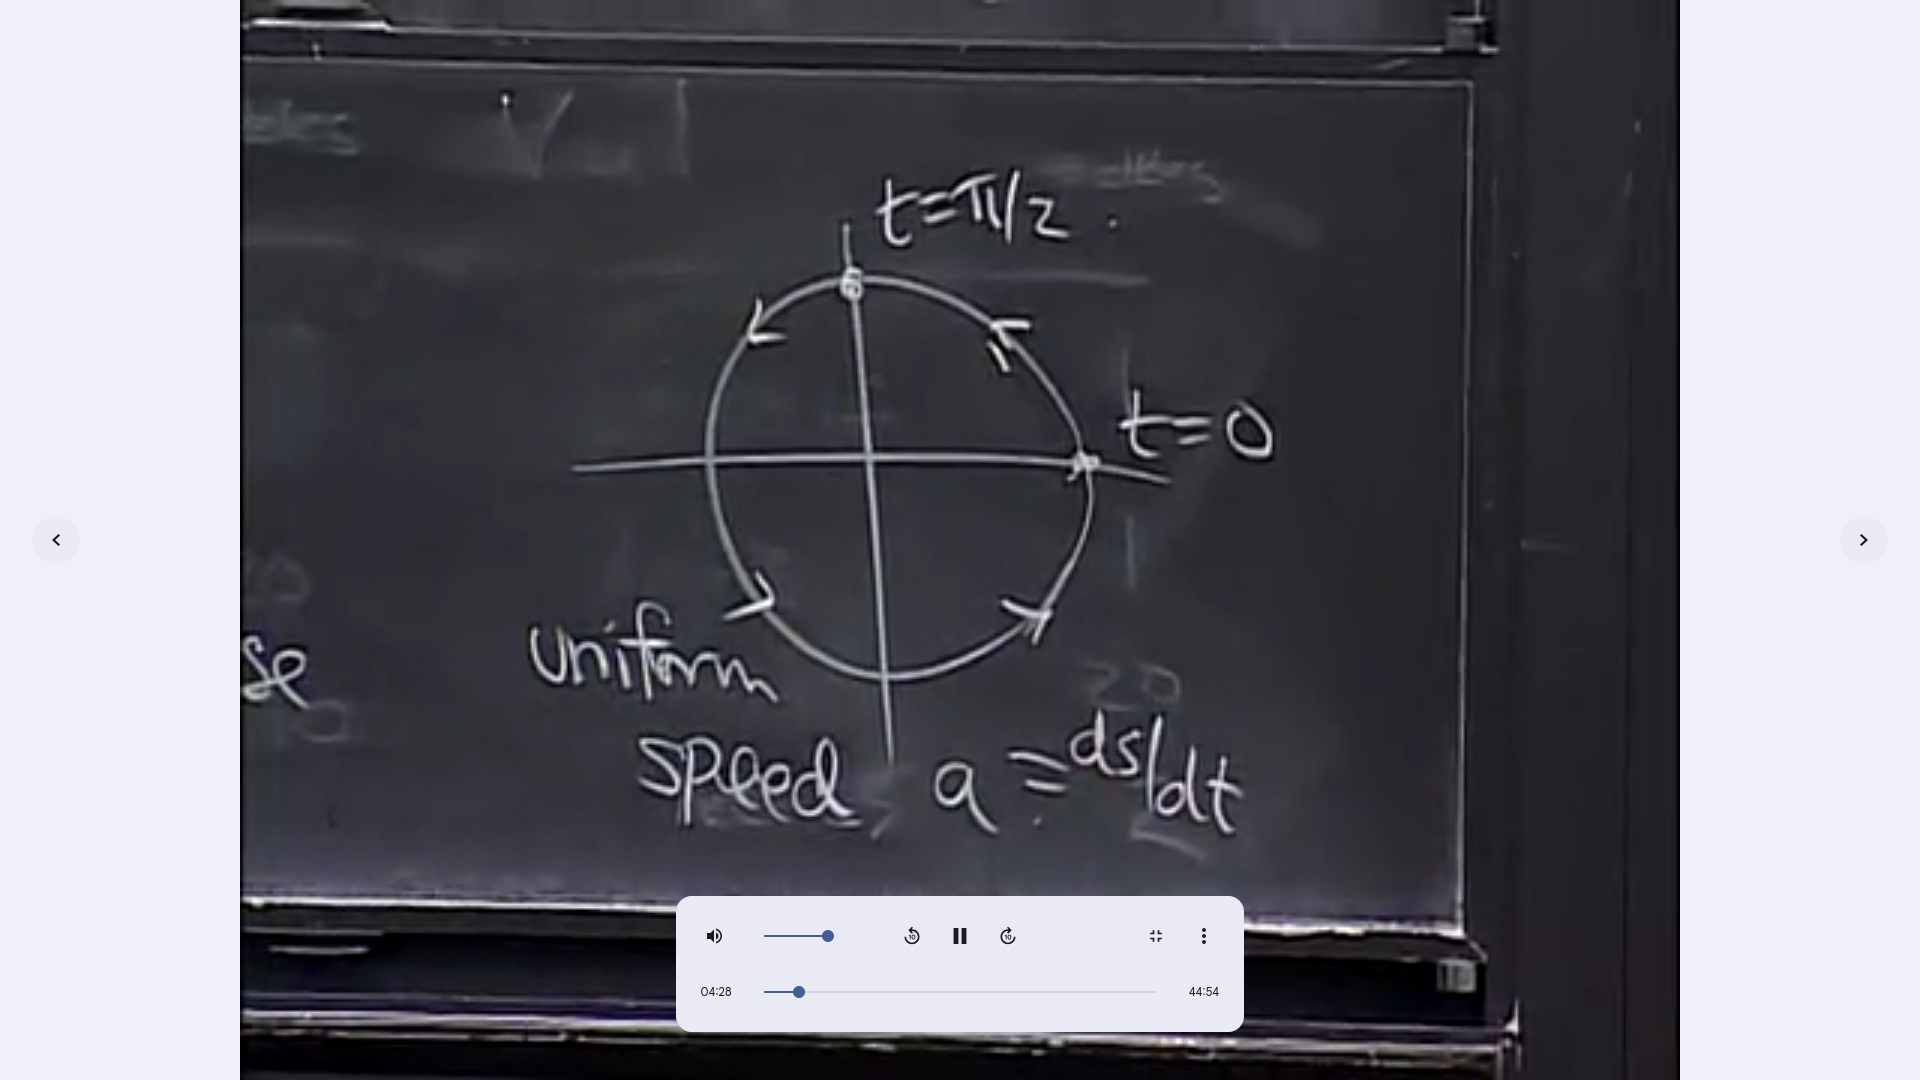 t=π/2
t=0
se
uniform
speed, a = ds/dt
04:28
44:54